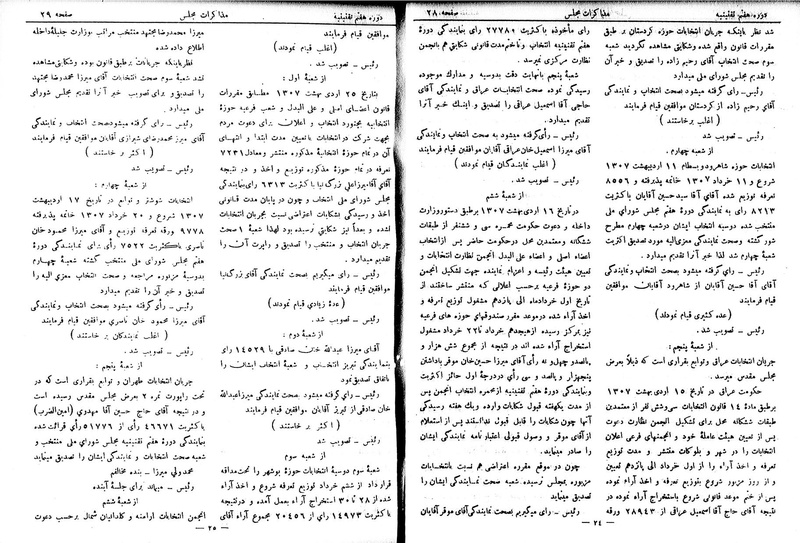 دوره هفتم تقنینیه مذاکرات مجلس صفحه ۲۸
شد نظر باینکه جریان انتخابات حوزه کردستان بر طبق
مقررات قانون واقع شده وشکایتی مشاهده نگردید شعبه
سوم صحت انتخاب آقای رحیم زاده را تصدیق و خبر آن
را تقدیم مجلس شورای ملی میدارد.
رئیس - رأی گرفته میشود بصحت انتخاب و نمایندگی
آقای رحیم زاده از کردستان موافقین قیام فرمایند
( اغلب برخاستند )
رئیس - تصویب شد
از شعبه چهارم.
انتخابات حوزه شاهرود وبسطام ۱۱ اردیبهشت ۱۳۰۷
شروع و ۱۱ خرداد ۱۳۰۷ خاتمه پذیرفته و ۸۵۵۶
تعرفه توزیع شده آقای آقا سیدحسین آقایان باکثریت
۸۲۱۳ رای به نمایندگی دورۀ هفتم مجلس شورای ملی
منتخب شده دوسیه انتخاب ایشان درشعبه چهارم مطرح
شور گشته وصحت نمایندگی معزی الیه مورد تصدیق اکثریت
شعبه چهارم شد لذا خبر آنرا تقدیم میدارد.
رئیس - رأی گرفته میشود بصحت انتخاب ونمایندگی
آقای آقا حسین آقایان از شاهرود آقایان موافقین
قیام فرمایند
(عده کثیری قیام نمودند)
رئیس - تصویب شد.
از شعبه پنجم:
جریان انتخابات عراق وتوابع بقراری است که ذیلاً بعرض
مجلس مقدس میرسد.
حکومت عراق در تاریخ ۱۵ اردی بهشت ۱۳۰۷
برطبق مادۀ ۱۴ قانون انتخابات سی وشش نفر از معتمدین
طبقات ششگانه محل برای تشکیل انجمن نظارت دعوت
پس از تعیین هیئت عاملۀ خود و انجمنهای فرعی اعلان
انتخابات را در شهر و بلوکات منتشر و مدت توزیع
تعرفه و اخذ آراء را از اول خرداد الی پانزدهم تعیین
و از روز مزبور شروع بتوزیع تعرفه و اخذ آراء نموده
پس از ختم موعد قانونی شروع باستخراج آراء نموده در
نتیجه آقای حاج آقا اسمعیل عراقی از ۲۸۹۴۳ ورقه
رأی ماخوذه باکثریت ۲۷۷۸۹ رأی بنمایندگی دورۀ
هفتم تقنینیه انتخاب وتاختم مدت قانونی شکایتی هم بانجمن
نظارت مرکزی نمیرسد.
شعبۀ پنجم بانهایت دقت بدوسیه و مدارک موجوده
رسیدگی نموده صحت انتخابات عراق و نمایندگی آقای
حاجی آقا اسمعیل عراقی را تصدیق و اینک خبر آنرا
تقدیم میدارد.
رئیس - رأی گرفته میشود به صحت انتخاب و نمایندگی
آقای میرزا اسمعیل خان عراقی آقایان موافقین قیام فرمایند
( اغلب نمایندگان قیام نمودند )
رئیس - تصویب شد.
از شعبه ششم
در تاریخ ۱۶ اردی بهشت ۱۳۰۷ برطبق دستور وزارت
داخله و دعوت حکومت محمره سی و ششنفر از طبقات
ششگانه ومعتمدین محل درحکومت حاضر پس از انتخاب
اعضاء اصلی و اعضاء علی البدل انجمن نظارت انتخابات و
تعیین هیئت رئیسه و اعزام نماینده جهت تشکیل انجمن
دو حوزه فرعیه برحسب اعلانی که منتشر ساختند از
تاریخ اول خردادماه الی پانزدهم مشغول توزیع تعرفه و
اخذ آراء شده درموعد مقرر صندوقهای حوزه های فرعیه
نیز بمرکز رسیده ازهیجدهم خرداد تا ۲۲ خرداد مشغول
استخراج آراء شده اند در نتیجه از مجموع شش هزار و
پانصدو چهل و نه رأی آقای میرزا حسین خان موقر باداشتن
پنجهزار و پانصد و سی رأی دردرجۀ اول حائز اکثریت
و بنمایندگی دورۀ هفتم تقنینیه ازمحمره انتخاب انجمن پس
از مدت یکهفته قبول شکایات وارده و یک هفته رسیدگی
آنها چون شکایات را قابل قبول ندانستند پس از استعلام
ازآقای موقر و وصول قبولی اعتبار نامه نمایندگی ایشان
را صادر مینماید.
چون در موقع مقرره اعتراضی هم نسبت بانتخابات
مزبوره بمجلس نرسیده. شعبه صحت نمایندگی ایشان را
تصدیق مینماید
رئیس - رأی گرفته میشود بصحت نمایندگی آقای موقر آقایان
- ۲۴ -
دوره هفتم تقنینیه مذاکرات مجلس صفحه ۲۹
موافقین قیام فرمایند
(اغلب قیام نمودند)
رئیس - تصویب شد.
از شعبۀ اول:
بتاریخ ۲۵ اردی بهشت ۱۳۰۷ مطابق مقررات
قانون اعضای اصلی و علی البدل و شعب فرعیه حوزۀ
انتخابیه بجنورد انتخاب و اعلان برای دعوت مردم
بجهت شرکت در انتخابات باتعیین مدت ابتدا و انتهای
آن در تمام حوزۀ انتخابیۀ مذکوره منتشر ومعادل ۷۲۳۱
تعرفه درتمام حوزۀ مذکوره توزیع و اخذ و در نتیجه
آقای آقامیرزا علی بزرگ نیا باکثریت ۶۳۱۳ رأی بنمایندگی
مجلس شورای ملی انتخاب و چون در پایان مدت قانونی
اخذ و رسیدگی شکایات اعتراضی نسبت بجریان انتخابات
نشده و بعداً نیز شکایتی نرسیده بود لهذا شعبۀ ۱ صحت
جریان انتخاب و منتخب را تصدیق و راپرت آن را
تقدیم میدارد.
رئیس - رأی میگیریم بصحت نمایندگی آقای بزرگ نیا
موافقین قیام فرمایند
(عدۀ زیادی قیام نمودند)
رئیس - تصویب شد.
از شعبه دوم:
آقای میرزا عبدالله خان صادقی با ۱۴۵۲۹ رأی
بنمایندگی تبریز انتخاب و شعبه انتخاب ایشان را
باتفاق تصدیق نمود
رئیس - رأی گرفته میشود بصحت نمایندگی میرزا عبدالله
خان صادقی از تبریز آقایان موافقین قیام فرمایند
( اکثر بر خاستند )
رئیس - تصویب شد.
از شعبه سوم
شعبه سوم دوسیه انتخابات حوزۀ بوشهر را تحت مداقه
قرار داد از ششم خرداد توزیع تعرفه شروع و اخذ آراء
شده از ۲۸ تا ۳۰ استخراج آراء بعمل آمده و درنتیجه
باکثریت ۱۴۹۷۳ رأی از ۲۰۴۵۶ مجموع آراء آقای
میرزا محمدرضا مجتهد منتخب مراتب بوزارت جلیلۀ داخله
اطلاع داده شده
نظر باینکه جریانات برطبق قانون بوده وشکایتی مشاهده
نشد شعبۀ سوم صحت انتخابات آقای میرزا محمدرضا مجتهد
را تصدیق و برای تصویب خبر آنرا تقدیم مجلس شورای
ملی میدارد
رئیس - رأی گرفته میشود بصحت انتخاب و نمایندگی
آقای میرزا محمدرضای شیرازی آقایان موافقین قیام فرمایند
( اکثر بر خاستند )
رئیس - تصویب شد
از شعبۀ چهارم:
انتخابات شوشتر و توابع در تاریخ ۱۷ اردیبهشت
۱۳۰۷ شروع و ۲۰ خرداد ۱۳۰۷ خاتمه پذیرفته
۹۷۷۸ ورقه تعرفه توزیع و آقای میرزا محمود خان
ناصری باکثریت ۷۵۲۲ رأی برای نمایندگی دورۀ
هفتم مجلس شورای ملی منتخب گشته شعبۀ چهارم
بدوسیه مزبوره مراجعه و صحت انتخاب معزی الیه را
تصدیق و خبر آن را تقدیم میدارد.
رئیس - رأی گرفته میشود بصحت انتخاب و نمایندگی
آقای میرزا محمود خان ناصری موافقین قیام فرمایند
( اغلب نمایندگان بر خاستند )
رئیس - تصویب شد.
از شعبه پنجم:
جریان انتخابات طهران و توابع بقراری است که در
تحت راپورت نمره ۲ بعرض مجلس مقدس رسیده است
و در نتیجه آقای حاج حسین آقا مهدوی (امین الضرب)
باکثریت ۴۶۶۷۱ رأی از ۷۱۷۵۱ آراء قرائت شده
بنمایندگی دورۀ هفتم تقنینیه مجلس شورای ملی منتخب و
شعبه صحت انتخابات و نمایندگی ایشان را تصدیق مینماید
محمد ولی میرزا - بنده مخالفم
رئیس - میماند برای جلسۀ آینده
از شعبۀ ششم
انجمن انتخابات ارامنه و کلدانیان شمال برحسب دعوت
- ۲۵ -